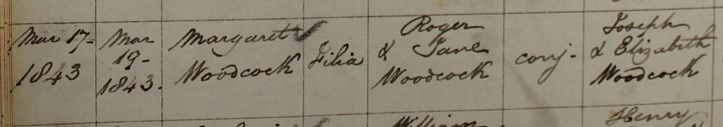 Mar 17-
1843
Mar
19-
1843.
Margaret
Woodcock
Filia
Roger
& Jane
Woodcock
conj-
Joseph
& Elizabeth
Woodcock
William
Henry